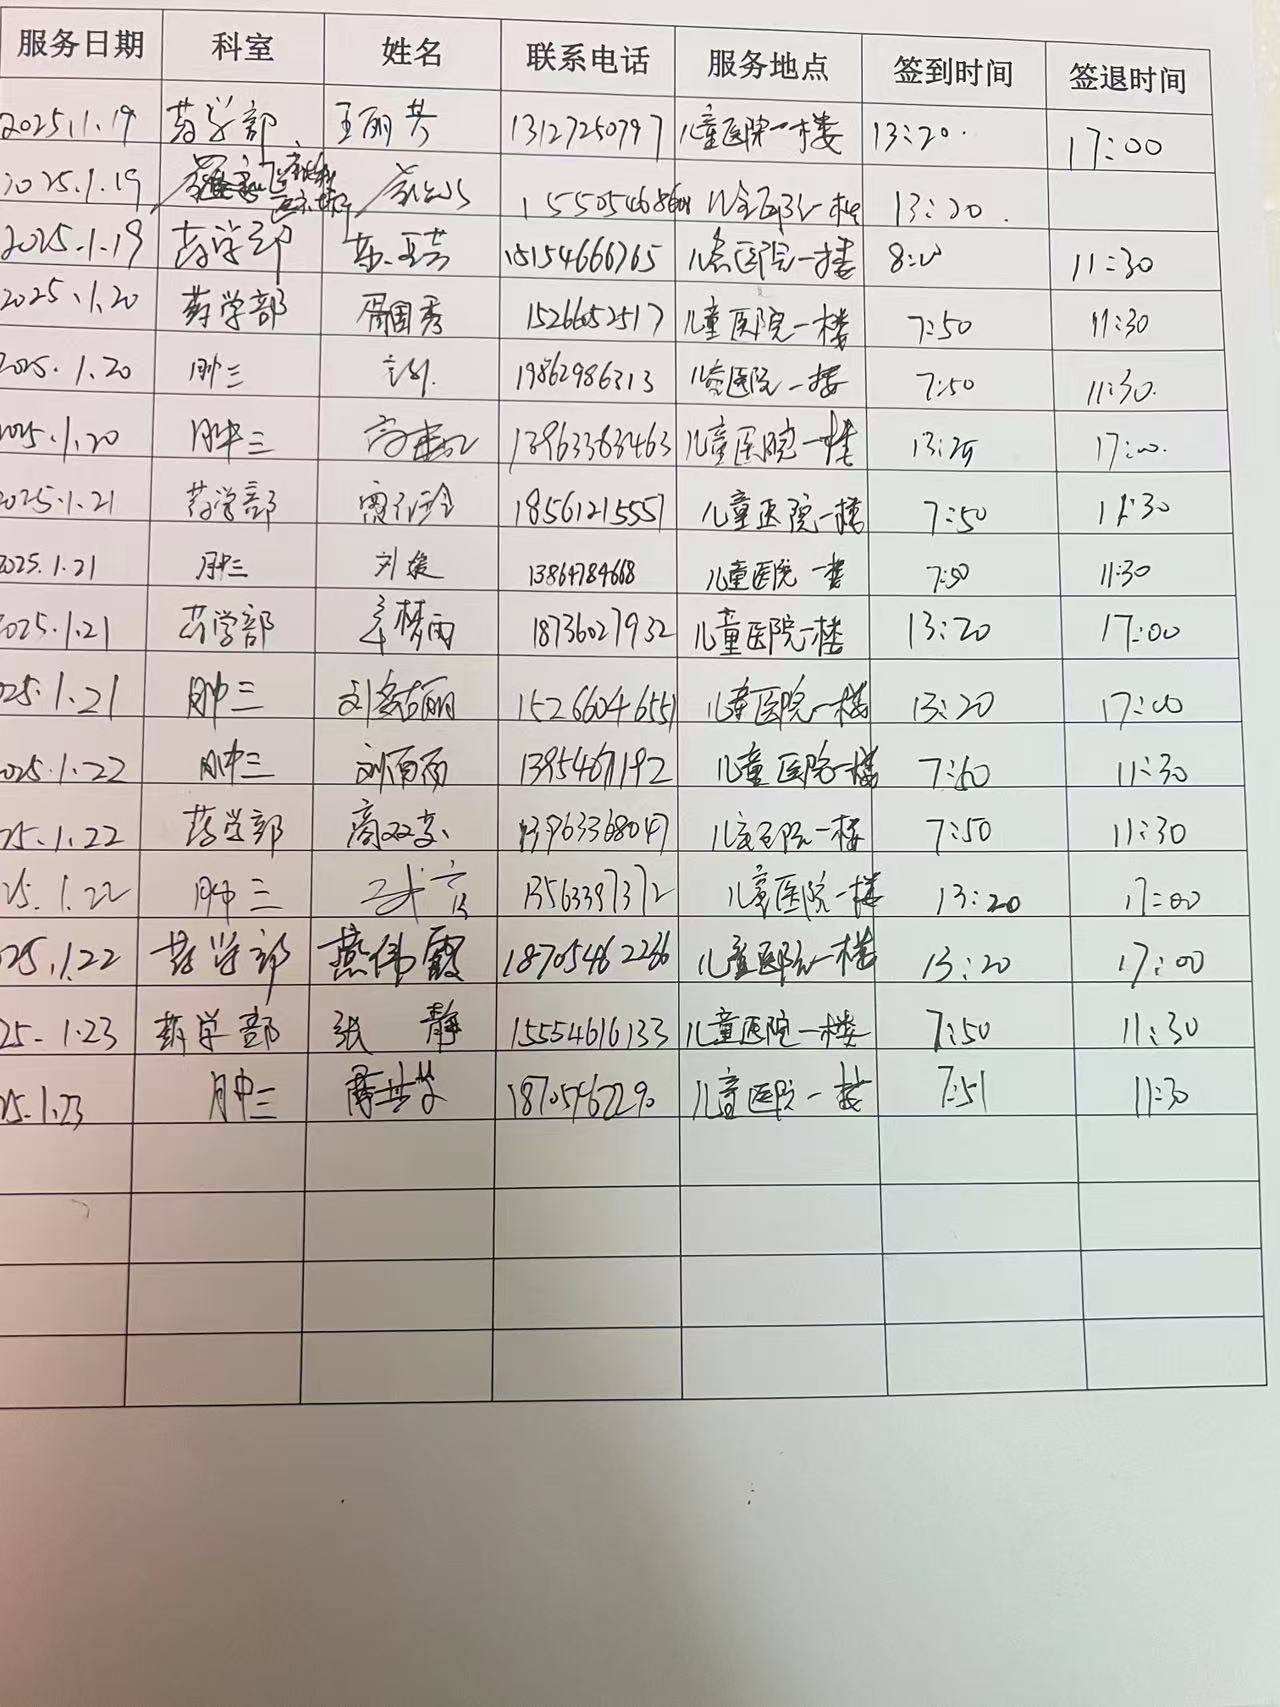 服务日期 科室 姓名 联系电话 服务地点 签到时间 签退时间
2025.1.19 药学部 王丽英 13127250797 儿童医院一楼 13:20 17:00
2025.1.19 13:20
2025.1.19 药学部 15154666765 儿童医院一楼 8:00 11:30
2025.1.20 药学部 周国秀 15266052517 儿童医院一楼 7:50 11:30
2025.1.20 肿三 19862986313 儿童医院一楼 7:50 11:30
2025.1.20 肿三 13963363463 儿童医院一楼 17:00
2025.1.21 药学部 18561215557 儿童医院一楼 7:50 11:30
2025.1.21 肿三 刘媛 13864784668 儿童医院一楼 7:50 11:30
2025.1.21 药学部 梦雨 18736027932 儿童医院一楼 13:20 17:00
025.1.21 肿三 15266046551 儿童医院一楼 13:20 17:00
2025.1.22 肿三 刘雨雨 儿童医院一楼 7:50 11:30
25.1.22 药学部 13963368047 儿童医院一楼 7:50 11:30
25.1.22 肿三 13563397372 儿童医院一楼 13:20 17:00
025.1.22 药学部 燕伟霞 18705462266 儿童医院一楼 13:20 17:00
25.1.23 药学部 张静 15554616133 儿童医院一楼 7:50 11:30
25.1.23 肿三 18705462290 儿童医院一楼 7:51 11:30